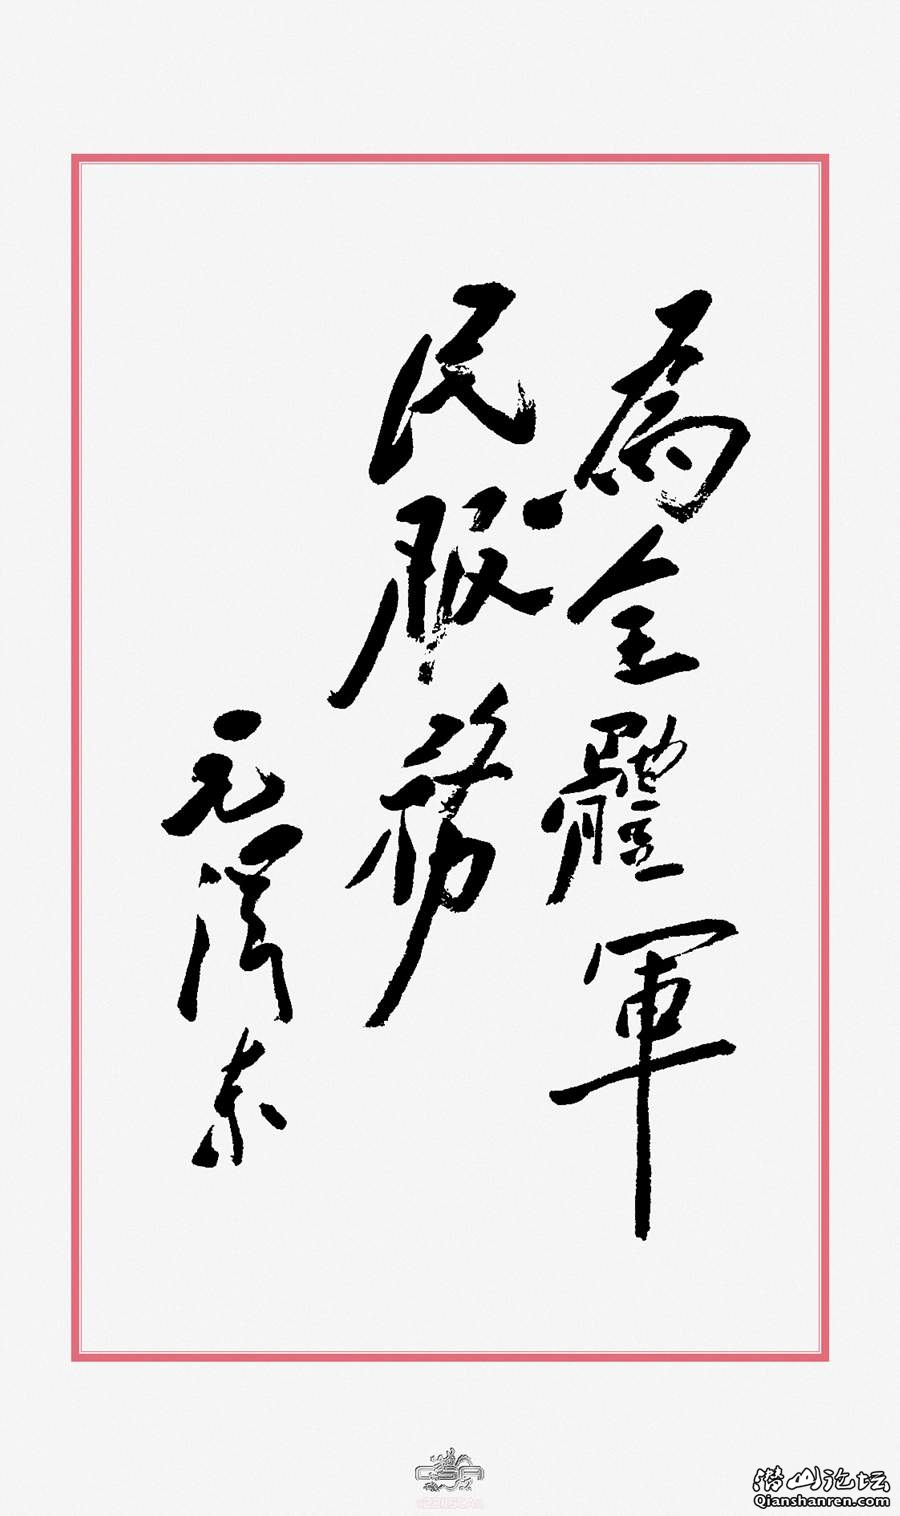 為全體軍
民服務
毛澤東
潜山论坛
Qianshanren.com